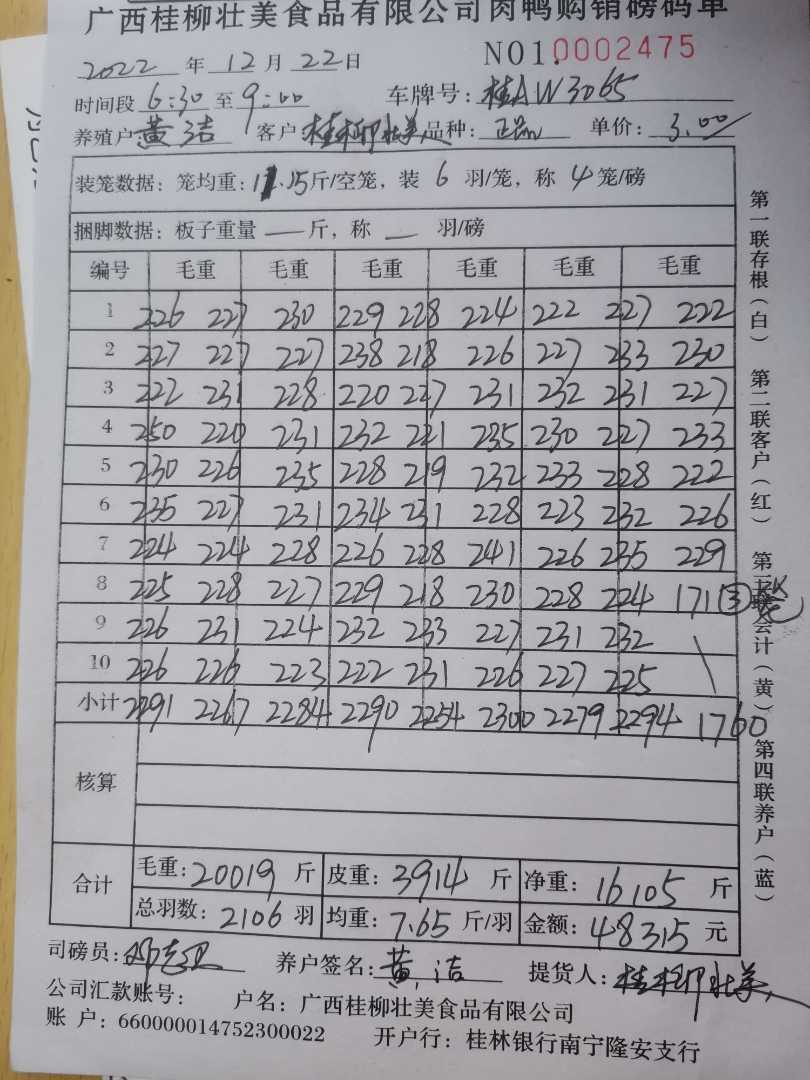 广西桂柳壮美食品有限公司肉鸭购销磅码单
2022 年 12 月 22 日 NO1.0002475
时间段 6:30 至 9:00 车牌号: 桂AW3065
养殖户 黄洁 客户 桂林柳壮美 品种: 正品 单价: 3.00
装笼数据: 笼均重: 11.15 斤/空笼, 装 6 羽/笼, 称 4 笼/磅
捆脚数据: 板子重量 — 斤, 称 — 羽/磅
编号 毛重 毛重 毛重 毛重 毛重 毛重
1 226 227 230 229 228 224 222 227 222
2 227 227 227 238 218 226 227 233 230
3 222 231 228 220 227 231 232 231 227
4 250 220 231 232 221 235 230 227 233
5 230 226 235 228 219 232 233 228 222
6 235 227 231 234 231 228 223 232 226
7 224 224 228 226 228 241 226 235 229
8 225 228 227 229 218 230 228 224 171 ③
9 226 231 224 232 233 227 231 232
10 226 226 223 222 231 226 227 225 \
小计 2291 2267 2284 2290 2254 2300 2279 2294 1760
核算
合计 毛重: 20019 斤 皮重: 3914 斤 净重: 16105 斤
总羽数: 2106 羽 均重: 7.65 斤/羽 金额: 48315 元
司磅员: 养户签名: 黄洁 提货人: 桂林柳壮美
公司汇款账号: 户名: 广西桂柳壮美食品有限公司
账 户: 660000014752300022 开户行: 桂林银行南宁隆安支行
第一联存根(白) 第二联客户(红) 第三联会计(黄) 第四联养户(蓝)